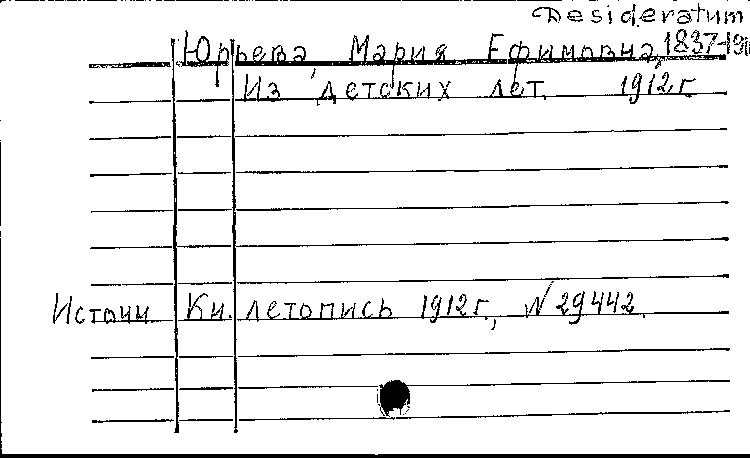 Desideratum
Юрьева, Мария Ефимовна, 1837-19
Из детских лет. 1912 г.
Источн. Кн. летопись 1912 г., № 29442.